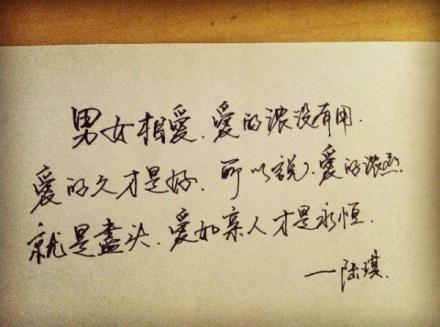 男女相愛.愛的浓没有用.
愛的久才是好.所以説,愛的浓烈
就是盡头.愛如亲人才是永恒.
—陆琪.